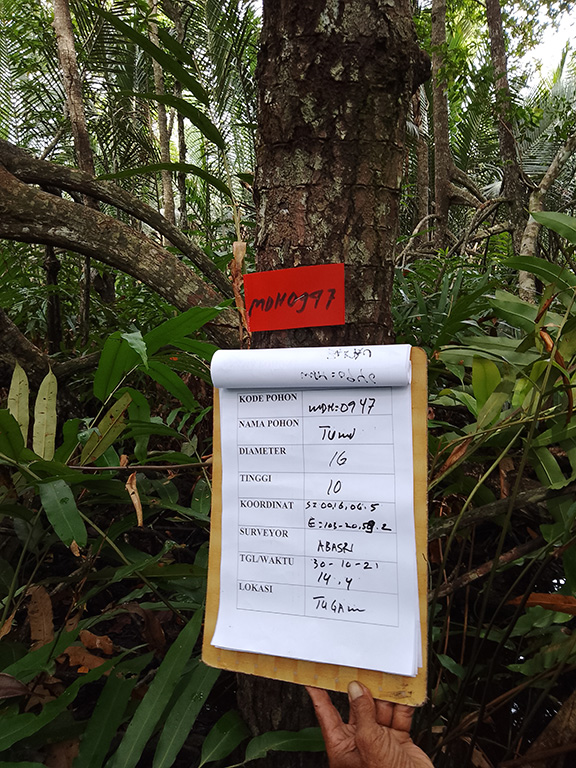 MDH0947
KODE POHON MDH=0947
NAMA POHON Tumu
DIAMETER 16
TINGGI 10
KOORDINAT S=0016,06.5
E=103-20,59.2
SURVEYOR ABASRI
TGL/WAKTU 30-10-21
14.4
LOKASI